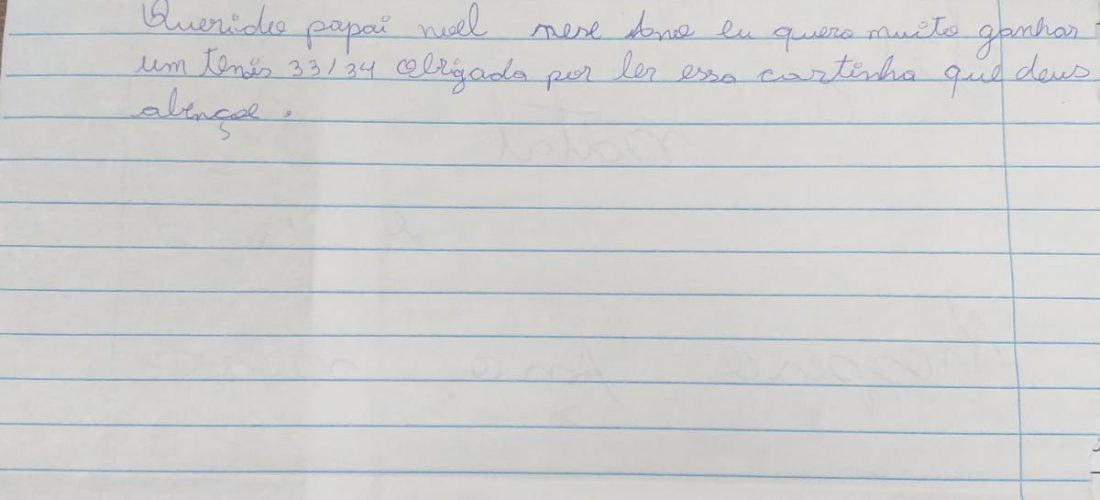 Querido papai noel nese Ano eu quero muito ganhar
um tenis 33/34 obrigado por ler essa cartinha que deus
abençoe.